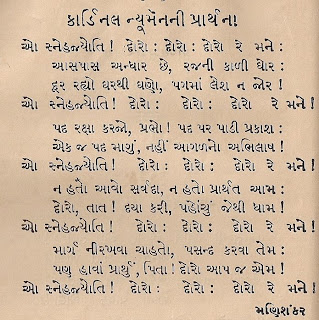 કાર્ડિનલ ન્યૂમેનની પ્રાર્થના
ઓ સ્નેહજ્યોતિ! દોરો: દોરો: દોરો રે મને:
આસપાસ અન્ધાર છે, રજની કાળી ઘોર:
દૂર રહ્યો ઘરથી ઘણો, પગમાં લેશ ન જોર!
ઓ સ્નેહજ્યોતિ! દોરો: દોરો: દોરો રે મને!
પદ રક્ષા કરજો, પ્રભો! પદ પર પાડી પ્રકાશ:
એક જ પદ માગું, નહીં આગળનો અભિલાષ!
ઓ સ્નેહજ્યોતિ! દોરો: દોરો: દોરો રે મને!
ન હતો આવો સર્વદા, ન હતો પ્રાર્થત આમ:
દોરો, તાત! દયા કરી, પહોંચું જેથી ધામ!
ઓ સ્નેહજ્યોતિ! દોરો: દોરો: દોરો રે મને!
માર્ગ નીરખવા ચાહતો, પસન્દ કરવા તેમ:
પણ હાવાં પ્રાર્થું, પિતા! દોરો આપ જ એમ!
ઓ સ્નેહજ્યોતિ! દોરો: દોરો: દોરો રે મને!
મણિશંકર